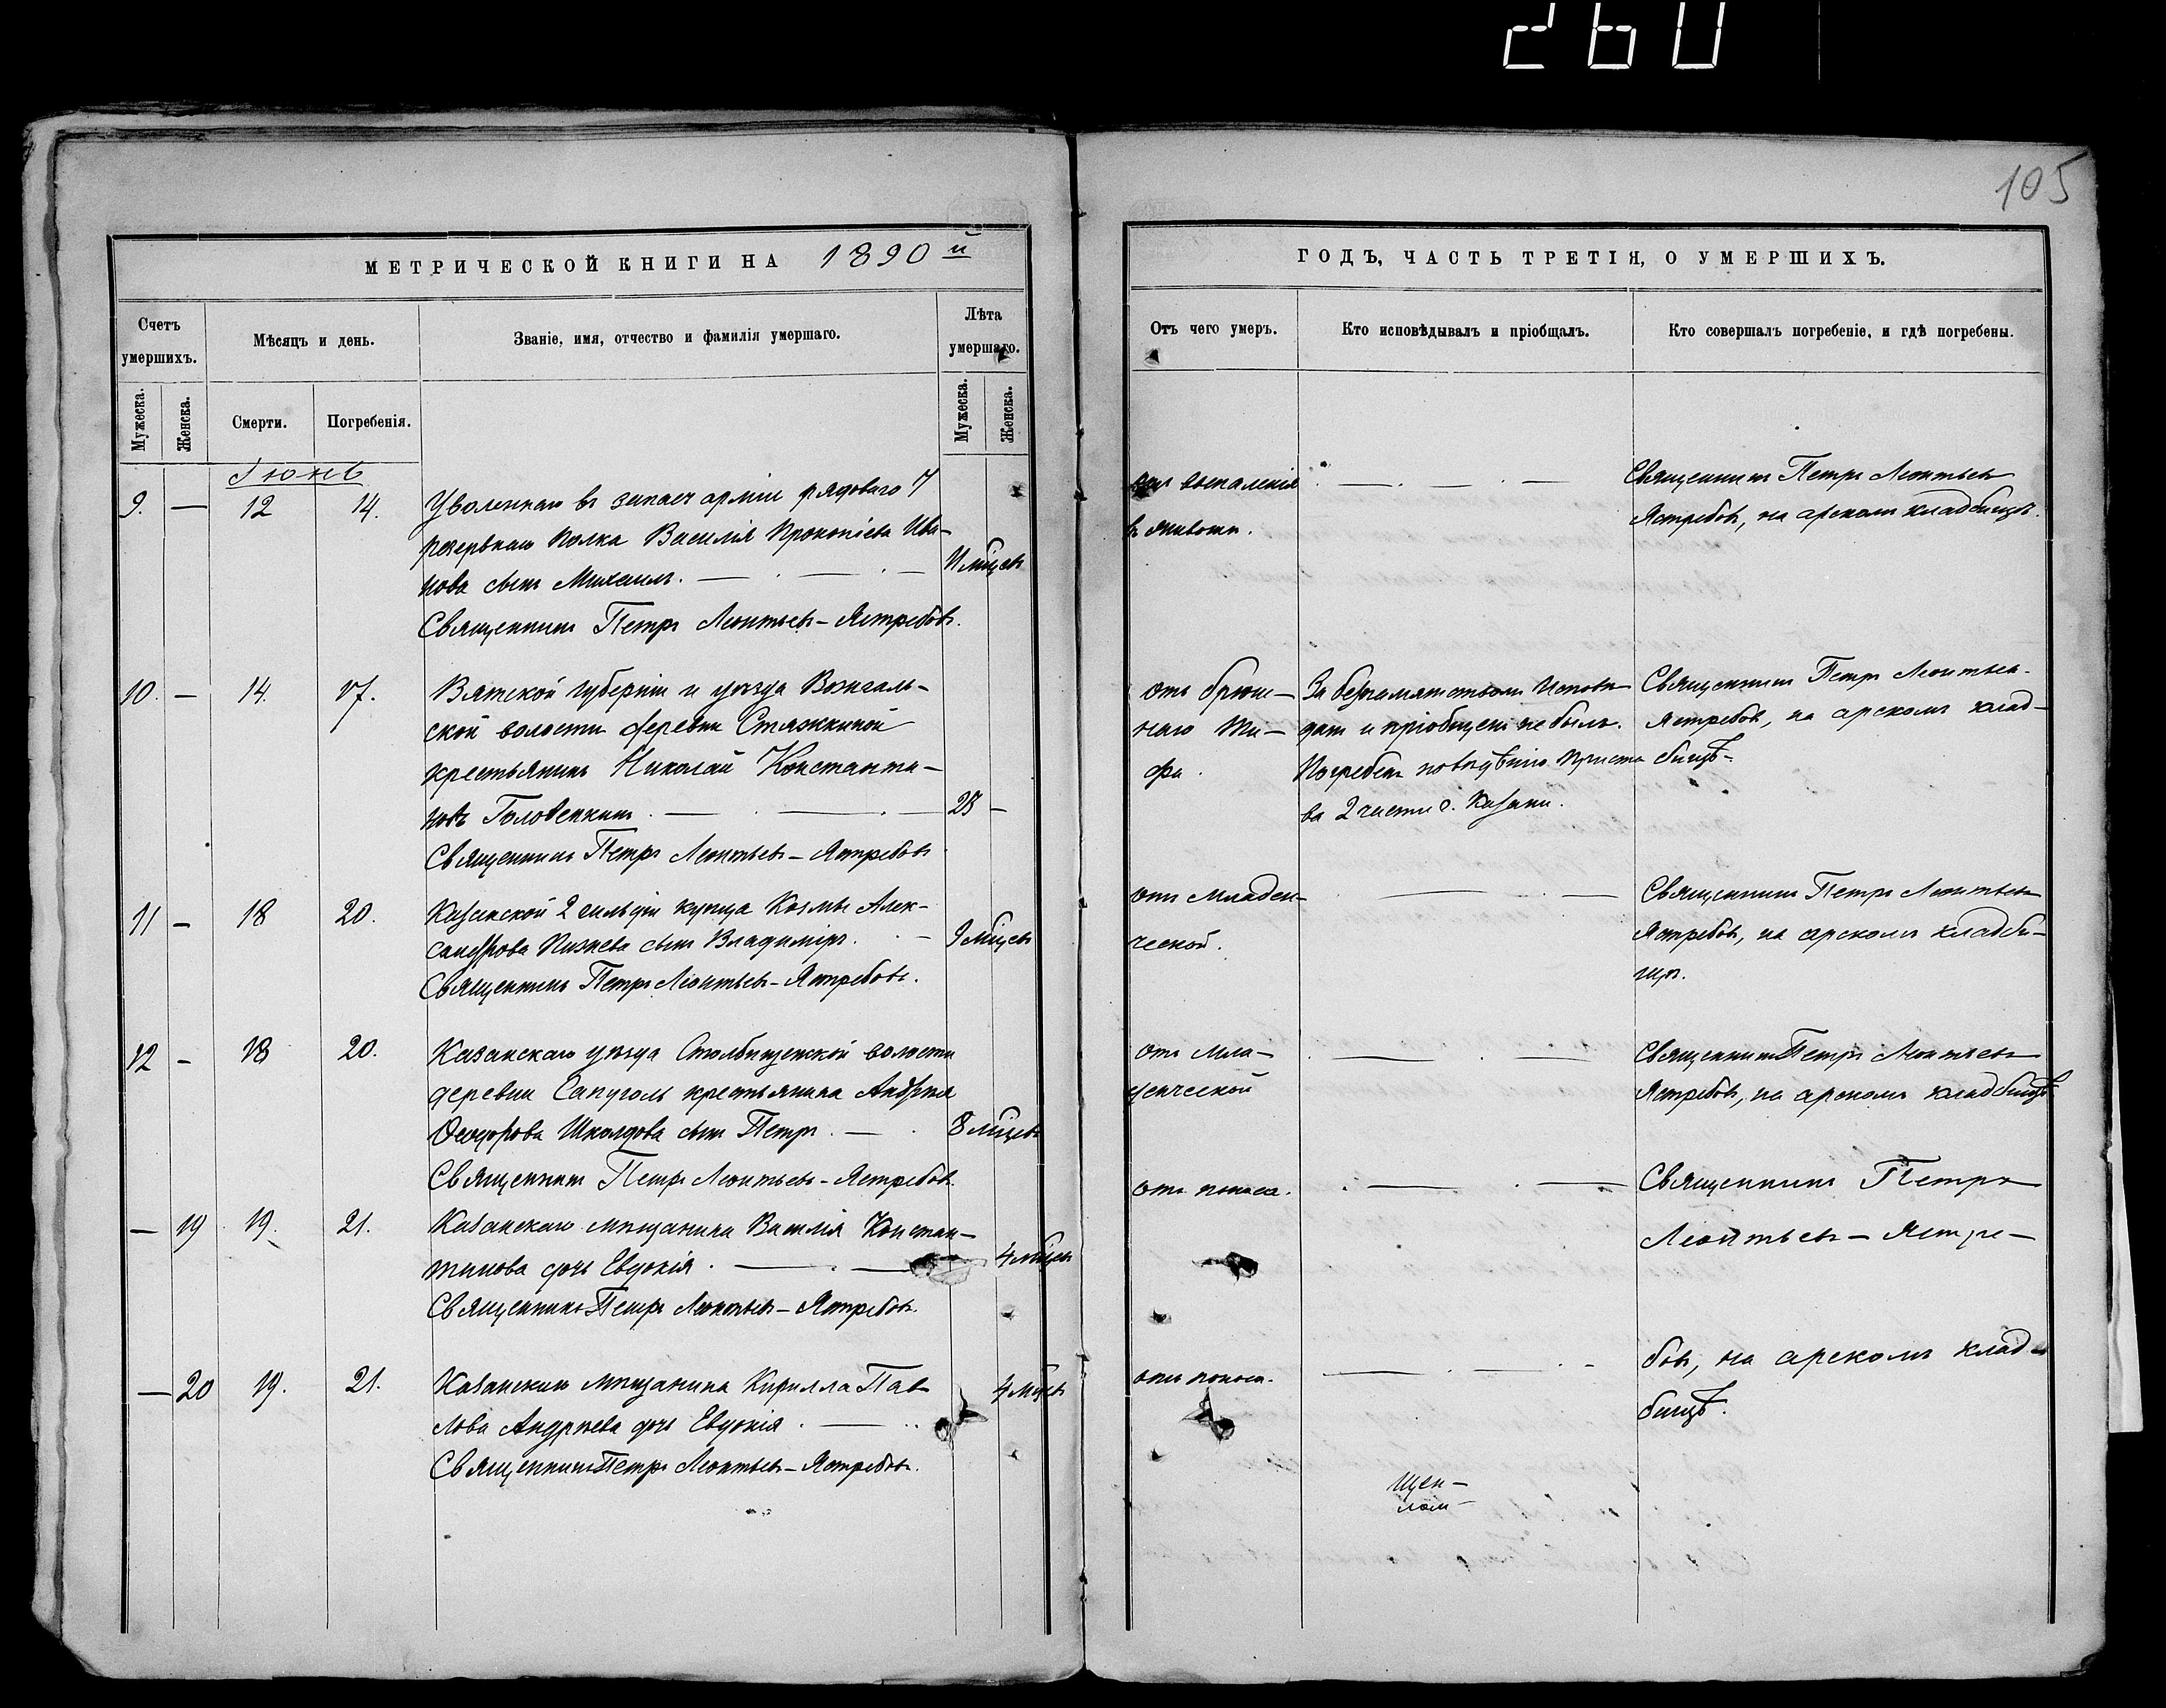 260
105
МЕТРИЧЕСКОЙ КНИГИ НА 1890й
ГОДЪ, ЧАСТЬ ТРЕТІЯ, О УМЕРШИХЪ.
Счетъ умершихъ.
Мѣсяцъ и день.
Званіе, имя, отчество и фамилія умершаго.
Лѣта умершаго.
Отъ чего умеръ.
Кто исповѣдывалъ и пріобщалъ.
Кто совершалъ погребеніе, и гдѣ погребены.
Мужеска.
Женска.
Смерти.
Погребенія.
Мужеска.
Женска.
Іюнь
9. — 12 14.
Уволеннаго въ запасъ арміи рядоваго 7
резервнаго полка Василія Прокопіева Ива-
нова сынъ Михаилъ. — . — . —
11 мѣцевъ
Священникъ Петръ Леонтьевъ-Ястребовъ.
воспаленія
въ животѣ.
Священникъ Петръ Леонтьевъ
Ястребовъ, на арскомъ кладбищѣ.
10. — 14. 17.
Вятской губерніи и уѣзда Вожгаль-
ской волости деревни Стяжкиной
крестьянинъ Николай Константи-
новъ Головенкинъ . — . — . —
28 —
Священникъ Петръ Леонтьевъ-Ястребовъ
отъ брюш-
наго ти-
фа.
За безпамятствомъ исповѣ-
данъ и пріобщенъ не былъ.
Погребенъ по вѣдѣнію приста
ва 2 части г. Казани.
Священникъ Петръ Леонтьев.
Ястребовъ, на арскомъ клад-
бищѣ-
11 — 18 20.
Казанской 2 гильдіи купца Козмы Алек-
сандрова сынъ Владиміръ. . —
9 мѣцевъ
Священникъ Петръ Леонтьевъ-Ястребовъ.
отъ младен-
ческой.
Священникъ Петръ Леонтьевъ
Ястребовъ, на арскомъ кладби-
щѣ.
12 — 18 20.
Казанскаго уѣзда Столбищенской волости
деревни Сапуголь крестьянина Андрея
Ѳеодорова Школдова сынъ Петръ . — .
8 мѣцевъ
Священникъ Петръ Леонтьевъ-Ястребовъ.
отъ мла-
денческой
Священникъ Петръ Леонтьевъ
Ястребовъ, на арскомъ кладбищѣ
— 19 19. 21.
Казанскаго мѣщанина Василія Констан-
тинова дочь Евдокія . — . —
4 мѣцевъ
Священникъ Петръ Леонтьевъ-Ястребовъ.
отъ поноса.
Священникъ Петръ
Леонтьевъ-Ястре-
— 20 19. 21.
Казанскаго мѣщанина Кирилла Пав-
лова Андреева дочь Евдокія . — . .
4 мѣцевъ
Священникъ Петръ Леонтьевъ-Ястребовъ.
отъ поноса.
бовъ, на арскомъ клад-
бищѣ.